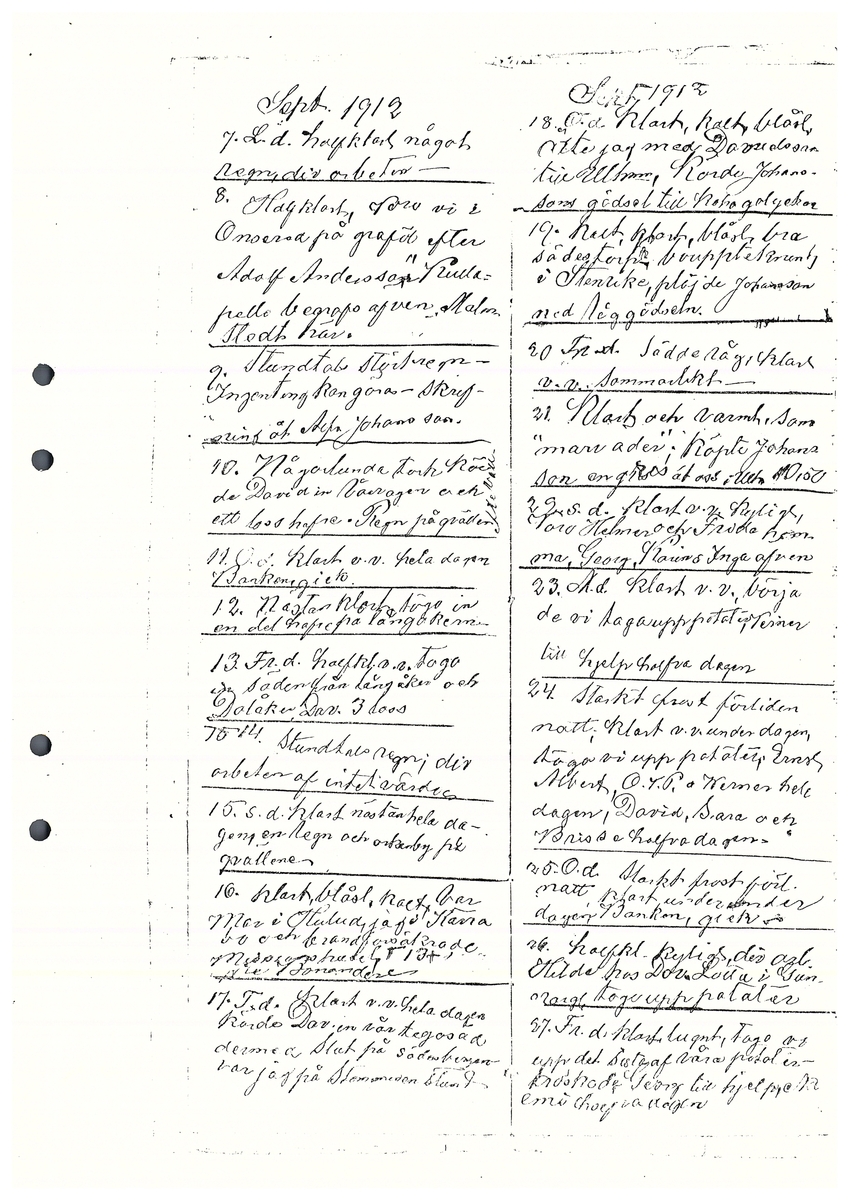 Sept. 1912
7. L.d. halfklart något
regn, div arbeten —
8. Halfklart, voro vi i
Onsered på graföl efter
Adolf Andersson, Kulla-
pelle begrafo afven Malm
stedt här.
9. Stundtals störtregn —
Ingenting kan göras — skrif-
åt Alfr Johansson.
10. Någorlunda torrt körde
de David in Vårragen och
ett lass hafre. Regn på qvällen
11. O.d. klart v.v. hela dagen
Banken, gick.
12. Nästan klart, togo in
en del hafre fra långåkern
13. Fr.d. halfkl. v.v. togo
in säden från långåker och
Dalåker, Dav. 3 lass
14. Stundtals regn; div
arbeten af intet värde
15. S.d. klart nästan hela da-
gen, en regn och by på
qvällen
16. Klart, blåst, kallt, var
Mor i Hulud, jag i Harra
och brandförsäkrade
17. T.d. klart v.v. hela dagen
körde Dav. in vår
dermed slut på sädesbergen
var jag på Stommen
Sept, 1912
18. O.d. Klart, kallt, blåst,
åkte jag med Davidsson
till Ullhm, Körde Johans-
sons gödsel till
19. kallt, klart, blåst, bra
sädestork,
i Stenrike, plöjde Johansson
ned låggödseln.
20 Fr.d. Sådde råg, klart
v.v. sommarlikt —
21. Klart och varmt, som
"marr ader"; Köpte Johans
son en gris åt oss i Ullh 10,50
22. s.d. klart v.v. kyligt,
voro Helmer och Frida hem
ma, Georg, Karins Inga afven
23. M.d. klart v.v., börja
de vi taga upp potatis, Verner
till hjelp halfva dagen
24. Starkt frost förliden
natt, klart v.v. under dagen,
togo vi upp potatis, Ernst,
Albert, O.S.P. o Werner hela
dagen, David, Sara och
Brisse halfva dagen.
25. O.d. Starkt frost förl.
natt, klart, under
dagen Banken, gick
26. halfkl. kyligt, div arb.
Hilda hos Dav. Lotta i Gun-
togo upp potatis
27. Fr.d. klart lugnt, togo vi
upp det sista af våra potatis —
tröskade, Georg till hjelp,
halfva dagen